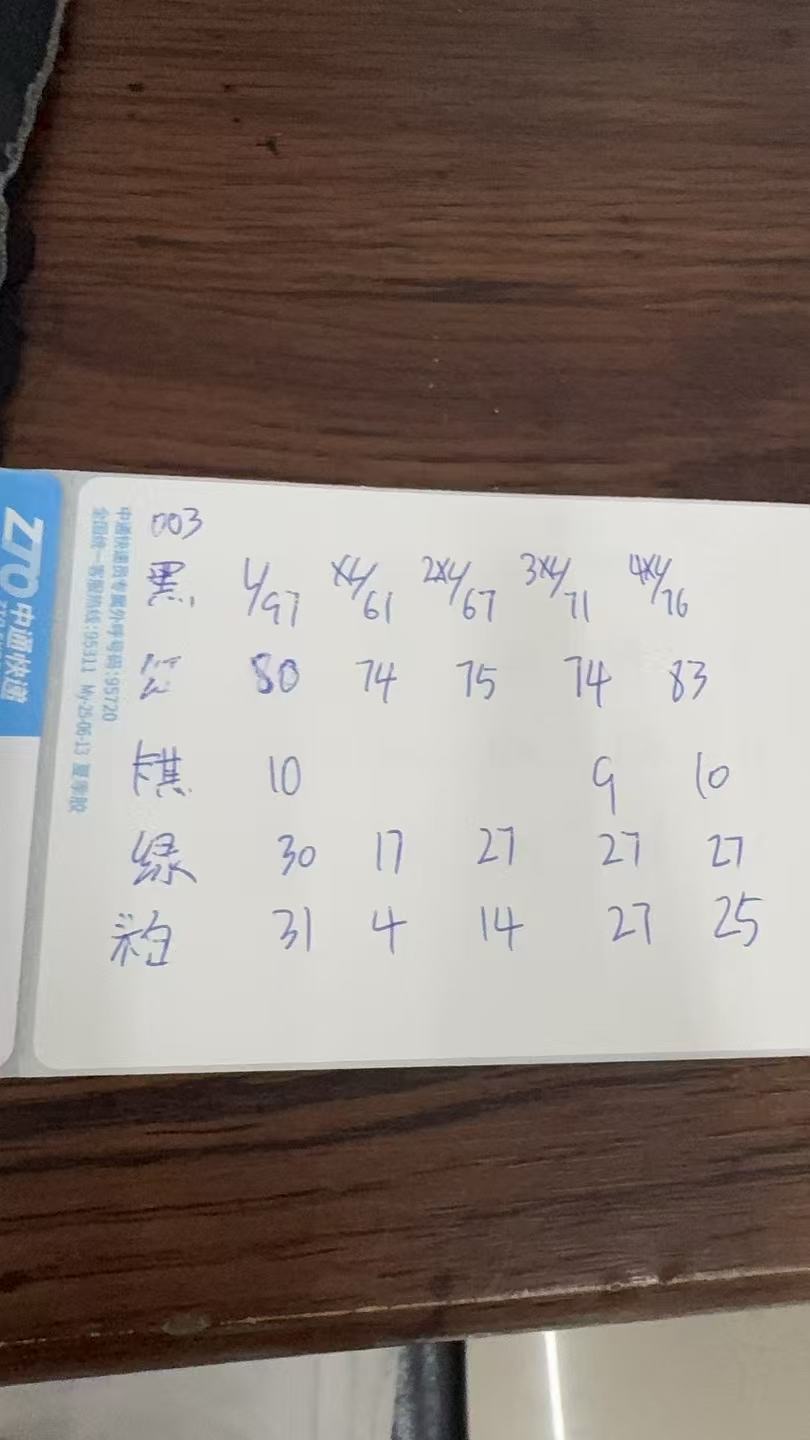 003
黑 L/97 XL/61 2XL/67 3XL/71 4XL/76
80 74 75 74 83
卡其 10 9 10
绿 30 17 27 27 27
粉 31 4 14 27 25
ZTO中通快递
中通快递员专属外呼号码:95720
全国统一客服热线:95311 My-25-06-13